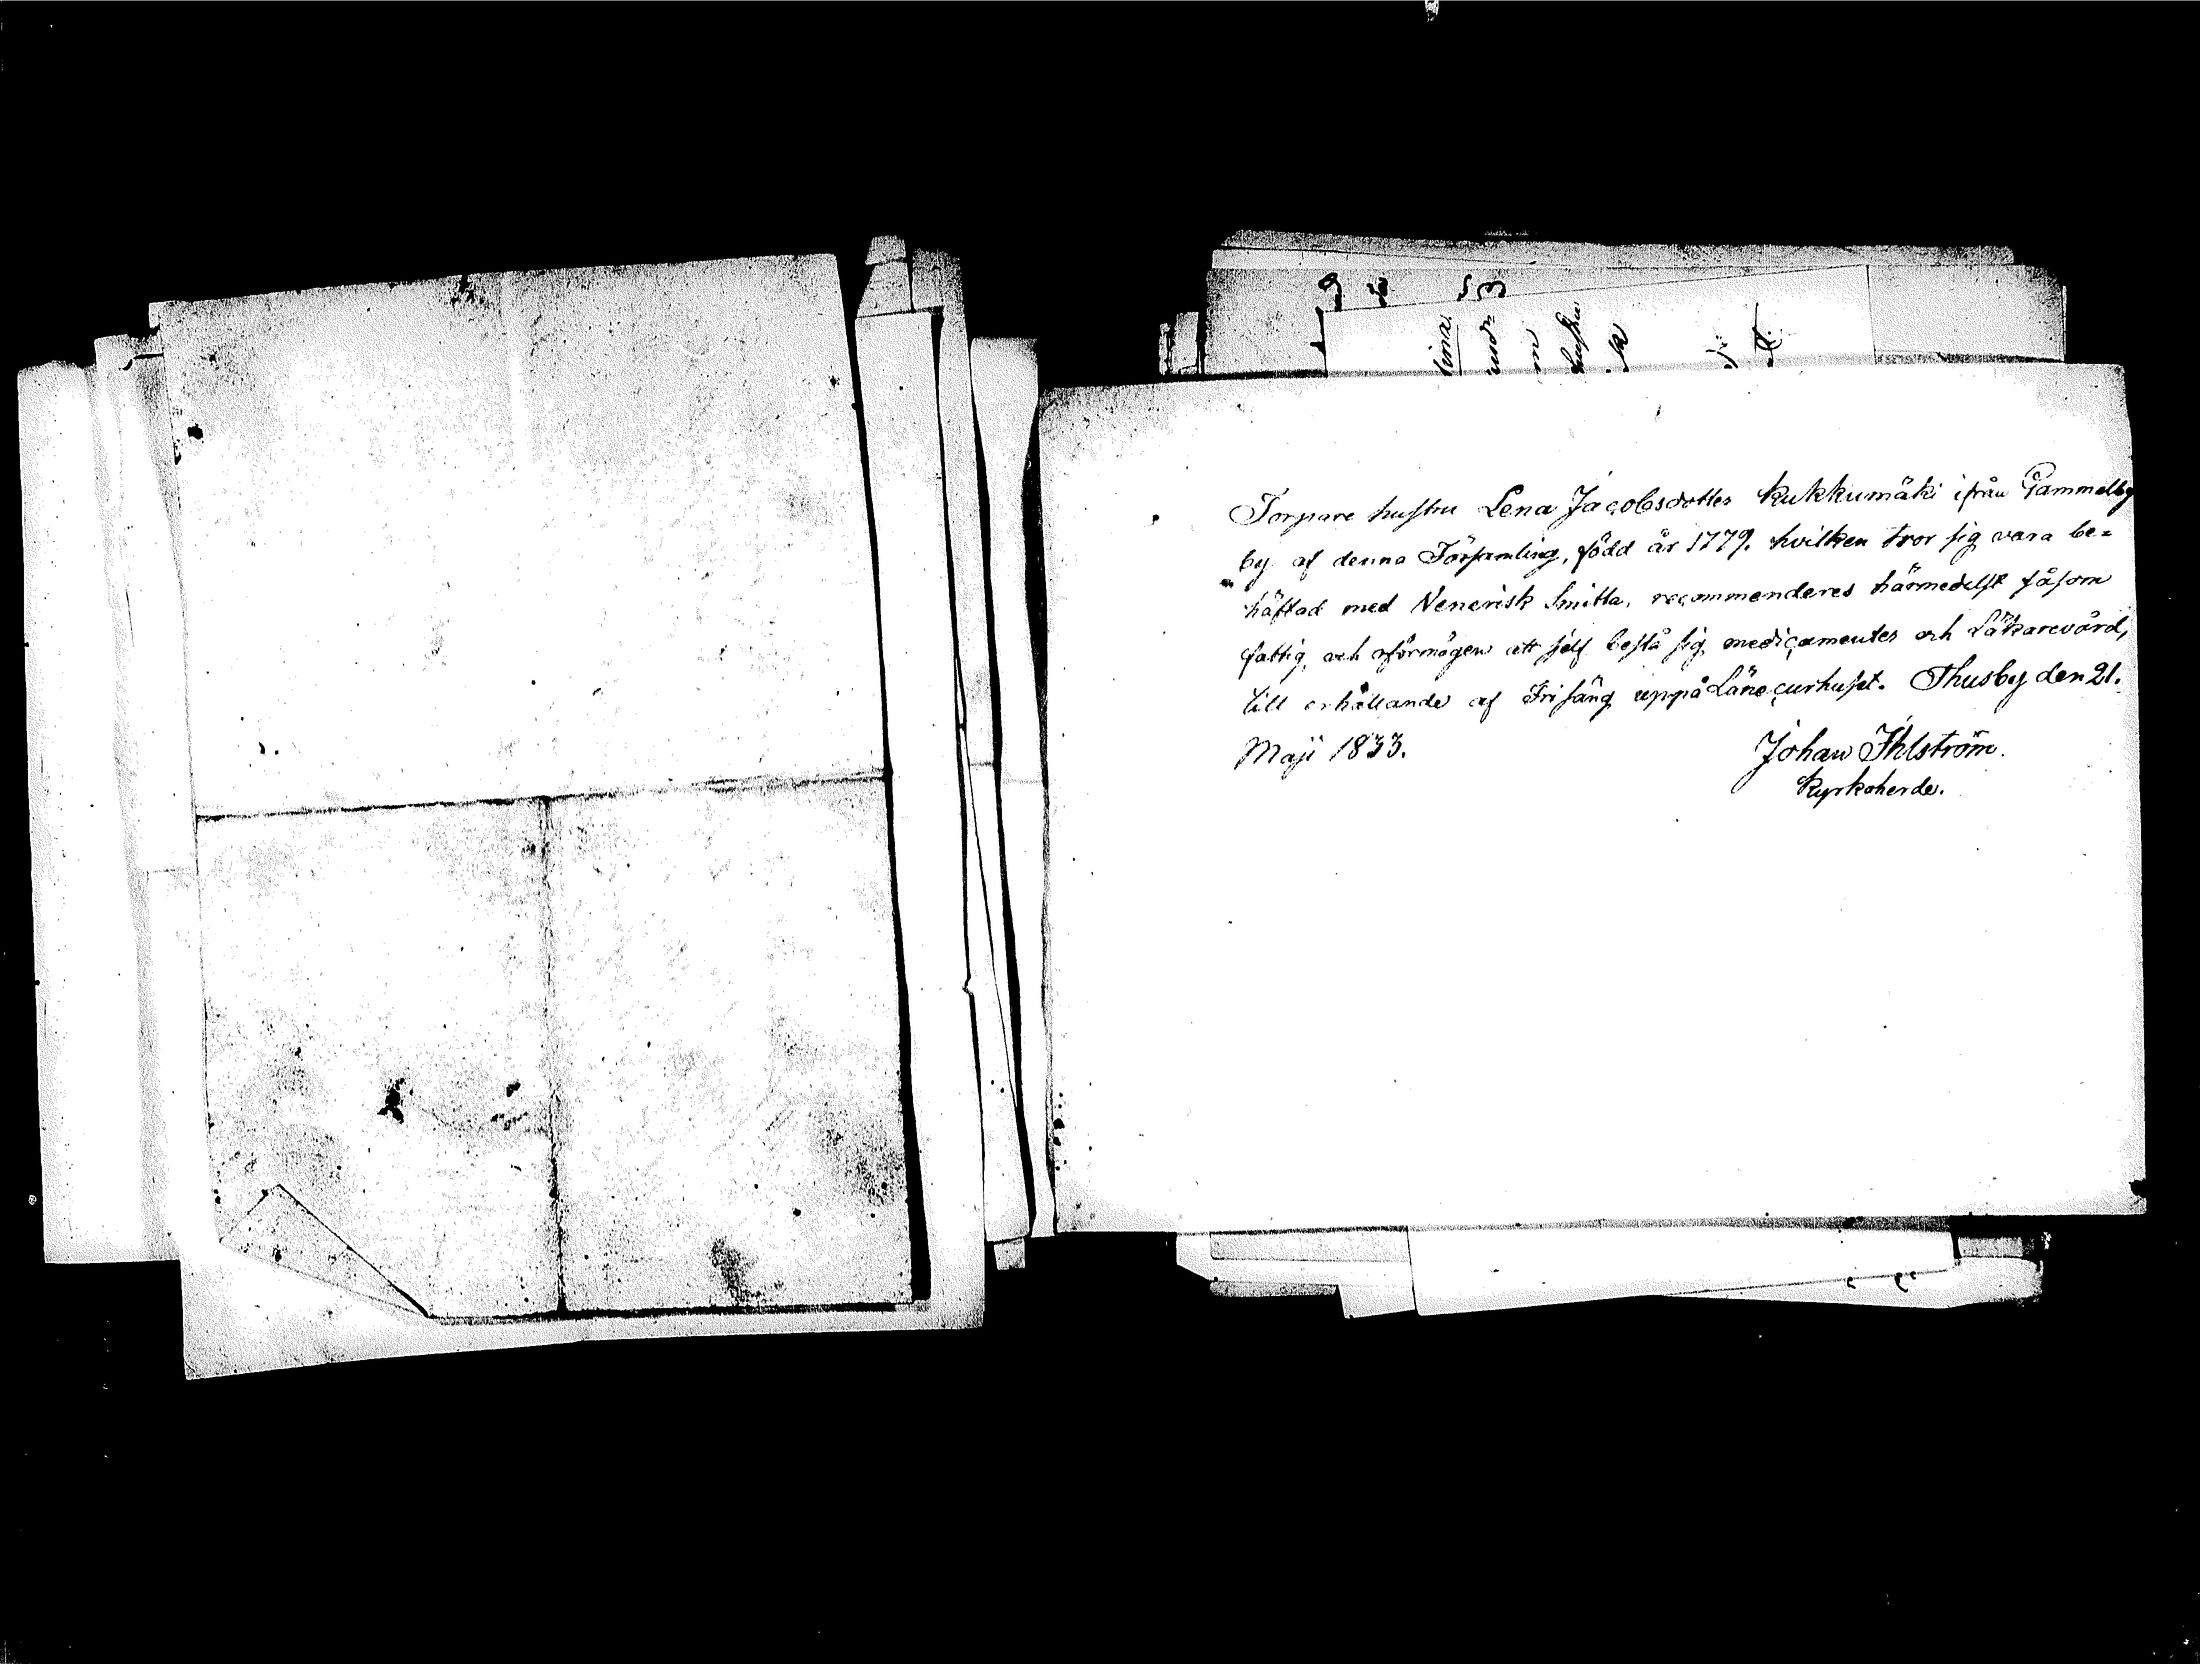 Torpare hustru Lena Jacobsdotter Kukkumäki ifrån Gammelby
by af denna Församling, född år 1779. hvilken tror sig vara be=
häftad med Venerisk Smitta, recommenderes härmedelst såsom
fattig och oförmögen att sjelf bestå sig medicamenter och Läkarevård,
till erhållande af Fri säng uppå Länscurhuset. Thusby den 21.
Maji 1833.
Johan Ihlström.
Kyrkoherde.